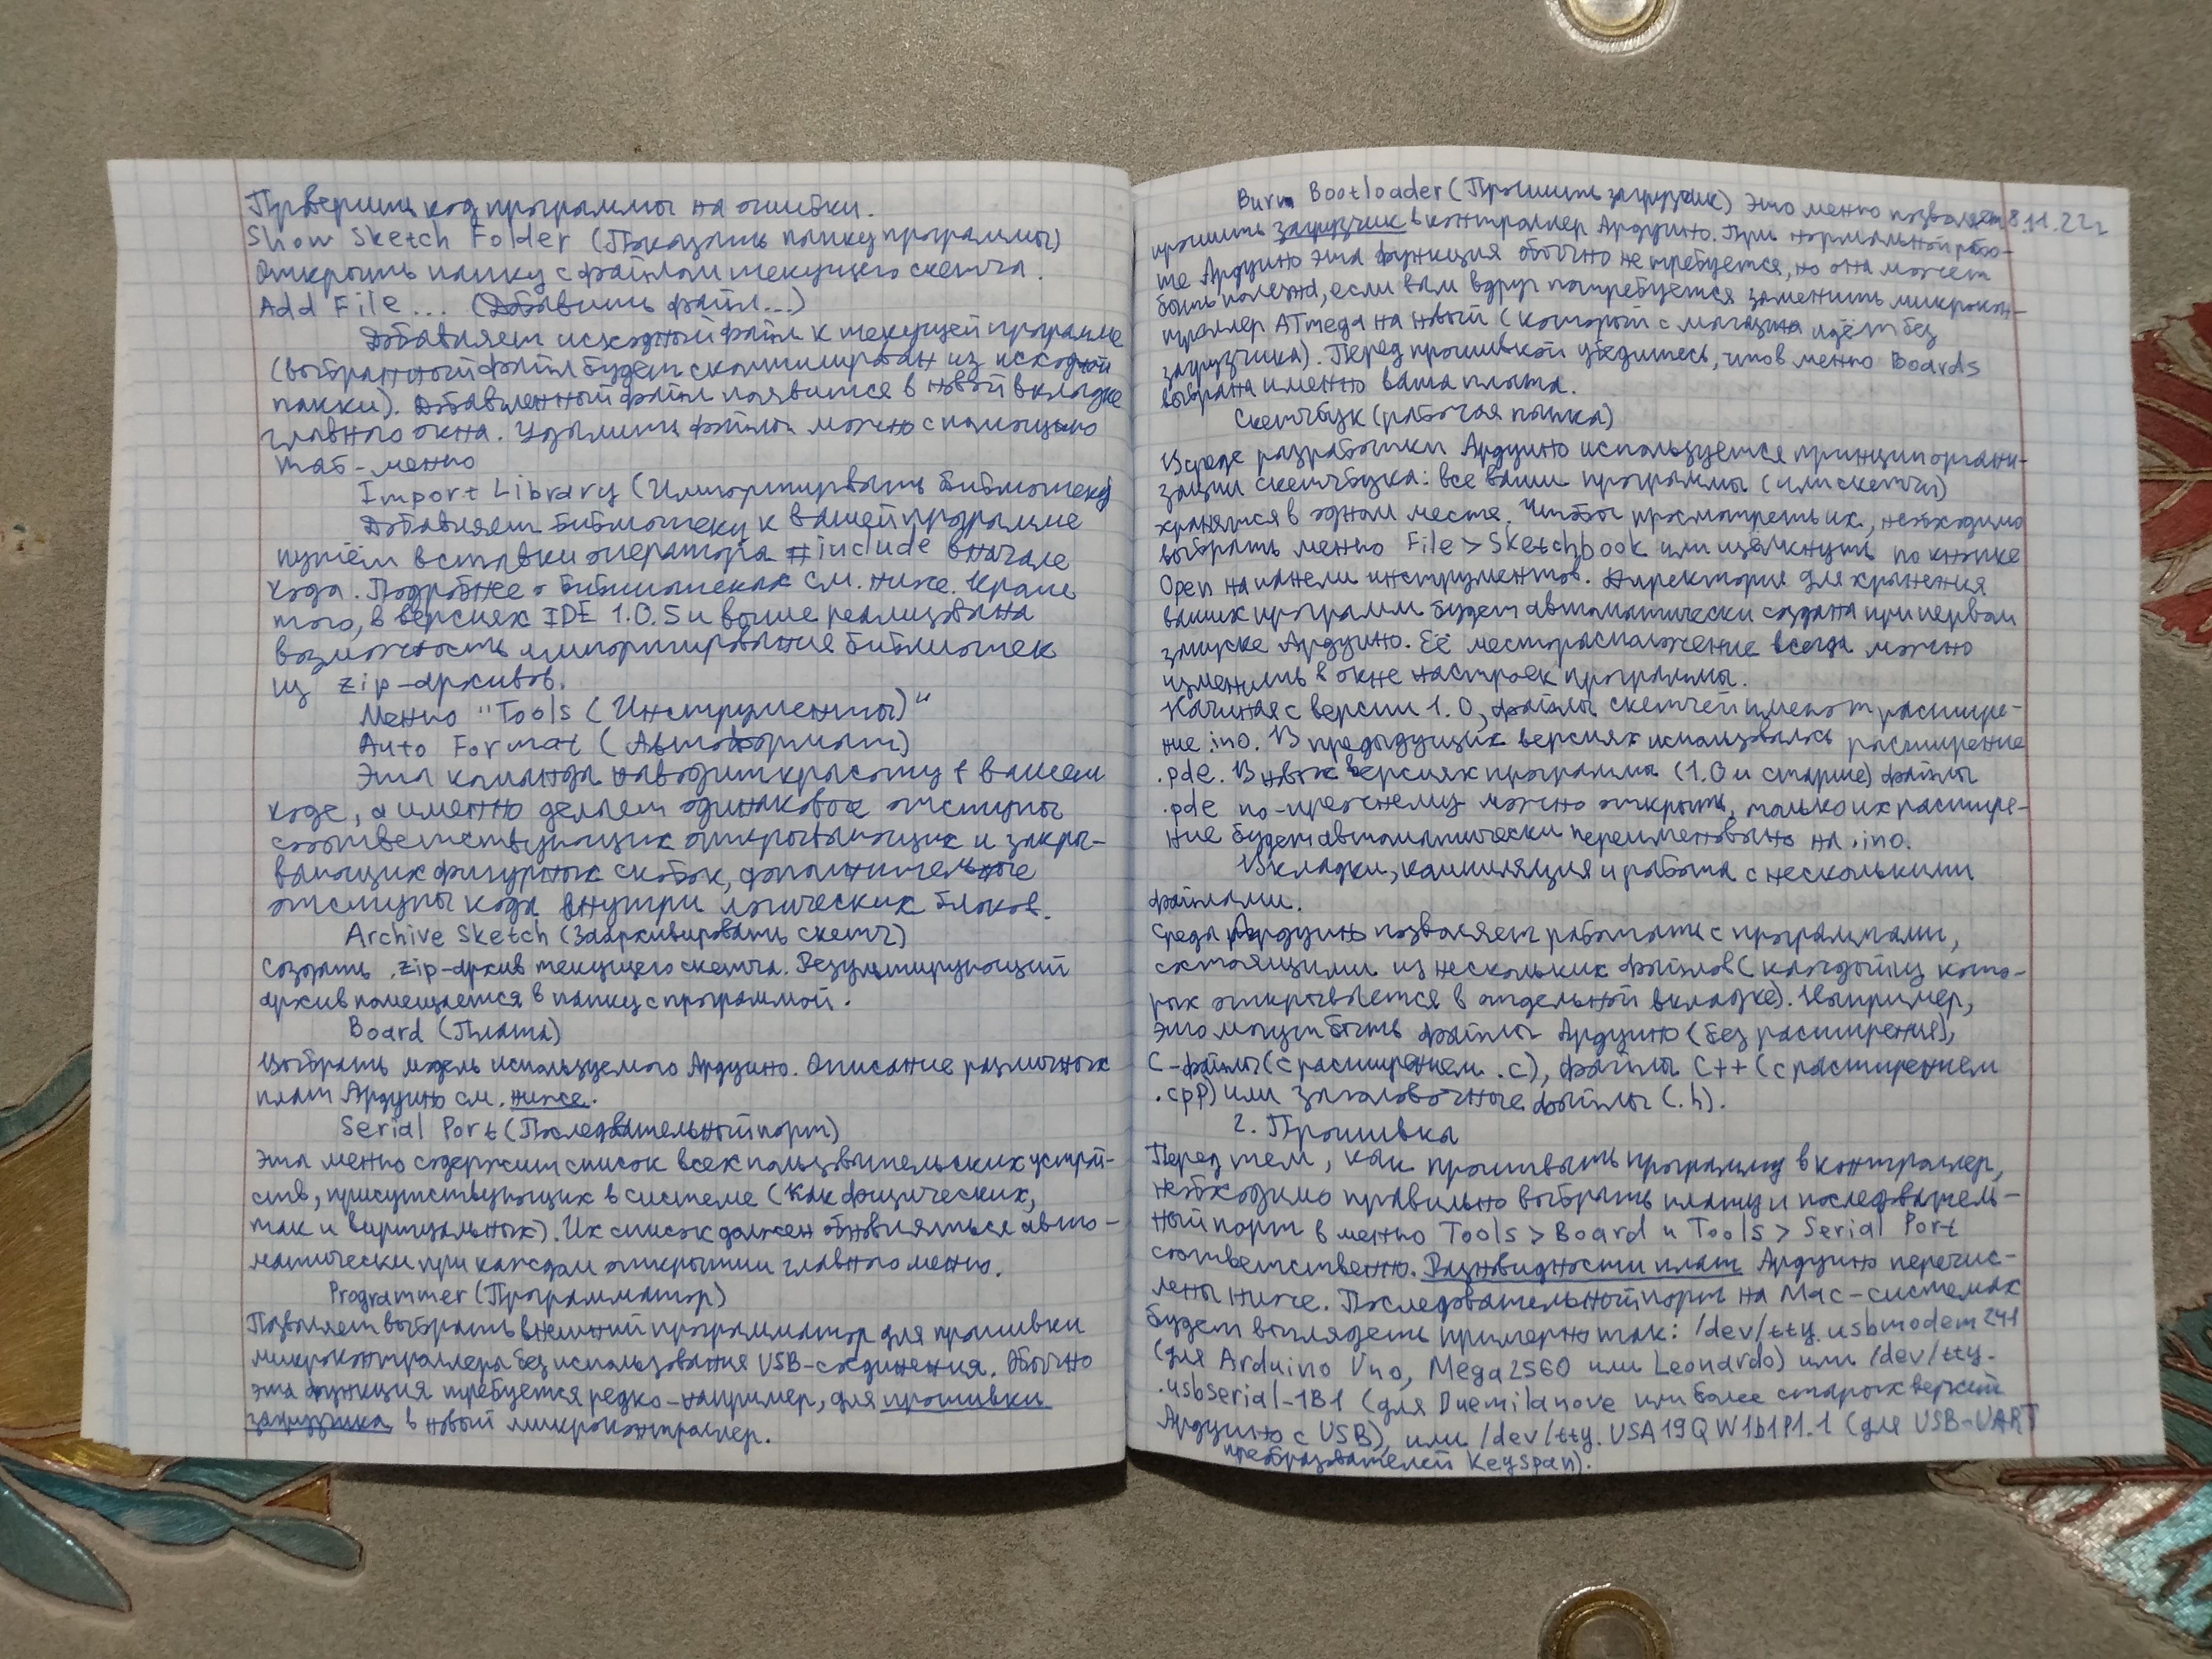 Проверить код программы на ошибки.
Show Sketch Folder (Показать папку программы)
Открыть папку с файлом текущего скетча.
Add File... (Добавить файл...)
Добавляет исходный файл к текущей программе
(выбранный файл будет скопирован из исходной
папки). Добавленный файл появится в новой вкладке
главного окна. Удалить файлы можно с помощью
таб-меню
Import Library (Импортировать библиотеку
Добавляет библиотеку к вашей программе
путём вставки оператора #include в начале
кода. Подробнее о библиотеках см. ниже. Кроме
того, в версиях IDE 1.0.5 и выше реализована
возможность импортирования библиотек
из zip-архивов.
Меню "Tools (Инструменты)"
Auto Format (Автоформат)
Эта команда наводит красоту в вашем
коде, а именно делает одинаковое отступы
соответствующих открывающих и закры-
вающих фигурных скобок, дополнительные
отступы кода внутри логических блоков.
Archive Sketch (Заархивировать скетч)
Создать .zip-архив текущего скетча. Результирующий
архив помещается в папку с программой.
Board (Плата)
Выбрать модель используемого Ардуино. Описание различных
плат Ардуино см. ниже.
Serial Port (Последовательный порт)
Эта меню содержит список всех пользовательских устрой-
ств, присутствующих в системе (как физических,
так и виртуальных). Их список должен обновляться авто-
матически при каждом открытии главного меню.
Programmer (Программатор)
Позволяет выбрать внешний программатор для прошивки
микроконтроллера без использования USB-соединения. Обычно
эта функция требуется редко - например, для прошивки
загрузчика в новый микроконтроллер.
8.11.22г
Burn Bootloader (Прошить загрузчик) Это меню позваляет
прошить загрузчик в контроллер Ардуино. При нормальной рабо-
те Ардуино эта функция обычно не требуется, но она может
быть полезна, если вам вдруг потребуется заменить микрокон-
троллер ATmega на новый (который с магазина идёт без
загрузчика). Перед прошивкой убедитесь, что в меню Boards
выбрана именно ваша плата.
Скетчбук (рабочая папка)
В среде разработки Ардуино используется принцип органи-
зации скетчбука: все ваши программы (или скетчи)
хранятся в одном месте. Чтобы просмотреть их, необходимо
выбрать меню File > Sketchbook или щёлкнуть по кнопке
Open на панели инструментов. Директория для хранения
ваших программ будет автоматически создана при первом
запуске Ардуино. Её месторасположение всегда можно
изменить в окне настроек программы.
Начиная с версии 1.0, файлы скетчей имеют расшире-
ние .ino. В предыдущих версиях использовалось расширение
.pde. В новых версиях программы (1.0 и старше) файлы
.pde по-прежнему можно открыть, только их расшире-
ние будет автоматически переименовано на .ino.
Вкладки, компиляция и работа с несколькими
файлами.
Среда Ардуино позволяет работать с программами,
состоящими из нескольких файлов (каждый из кото-
рых открывается в отдельной вкладке). Например,
это могут быть файлы Ардуино (без расширения),
С-файлы (с расширением .c), файлы C++ (с расширением
.cpp) или заголовочные файлы (.h).
2. Прошивка
Перед тем, как прошивать программу в контроллер,
необходимо правильно выбрать плату и последователь-
ный порт в меню Tools > Board и Tools > Serial Port
соответственно. Разновидности плат Ардуино перечис-
лены ниже. Последовательный порт на Mac-системах
будет выглядеть примерно так: /dev/tty.usbmodem241
(для Arduino Uno, Mega2560 или Leonardo) или /dev/tty-
.usbserial-1B1 (для Duemilanove или более старых версий
Ардуино с USB), или /dev/tty.USA19QW1b1P1.1 (для USB-UART
преобразователей Keyspan).